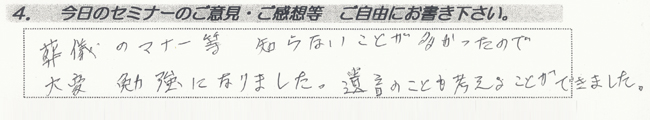 4. 今日のセミナーのご意見・ご感想等 ご自由にお書き下さい。
葬儀のマナー等 知らないことが多かったので
大変 勉強になりました。遺言のことも考えることができました。